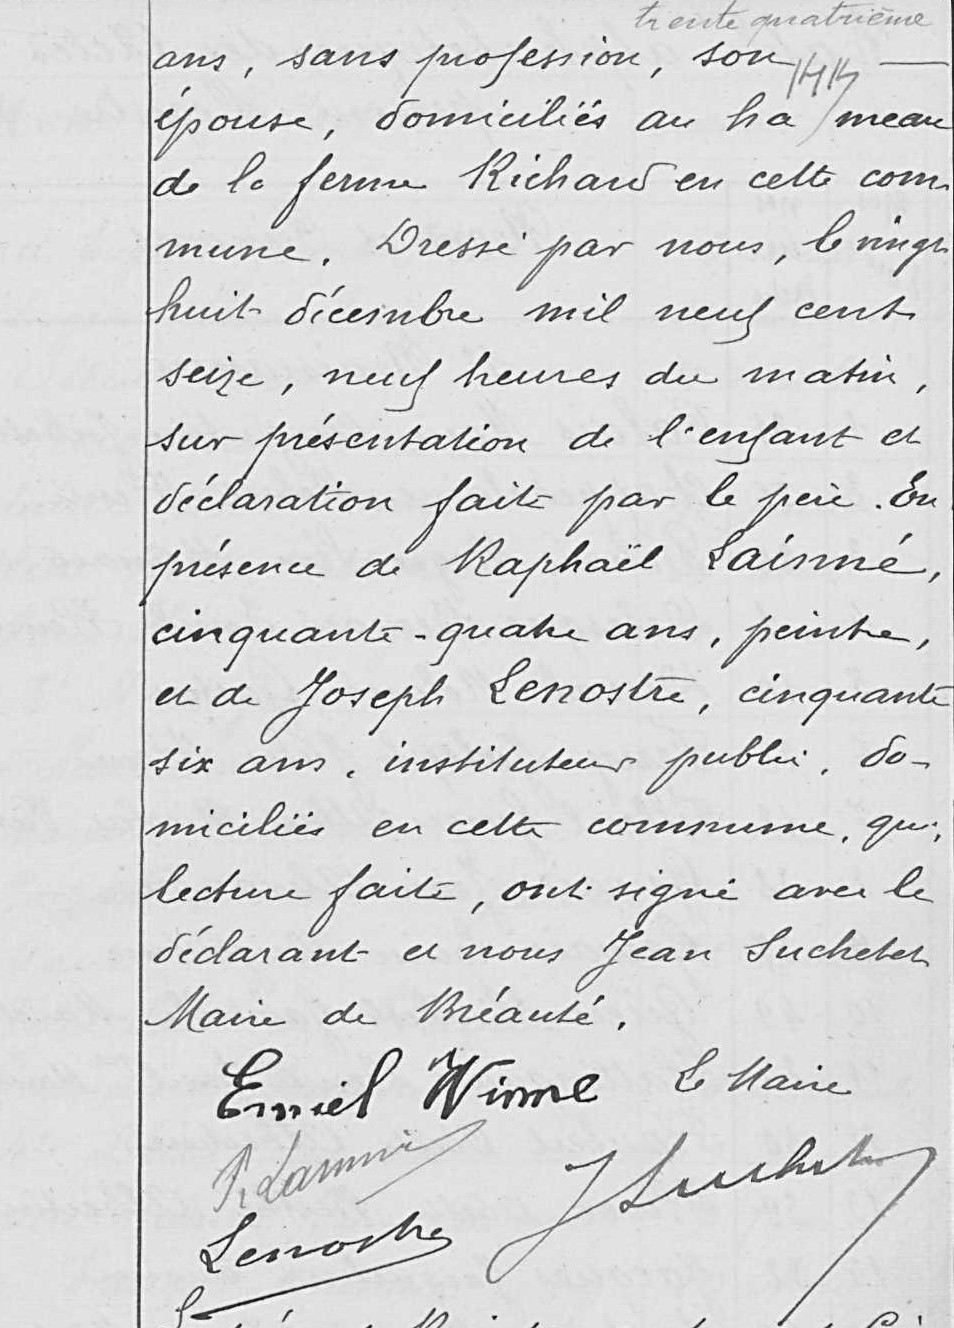 trente quatrième
ans, sans profession, son
épouse, domiciliés au ha meau
de la ferme Richard en cette com
mune. Dressé par nous, le vingt
huit décembre mil neuf cent
seize, neuf heures du matin,
sur présentation de l'enfant et
déclaration faite par le père. En
présence de Raphaël Lainné,
cinquante-quatre ans, peintre,
et de Joseph Lenostre, cinquante
six ans, instituteur public, do-
miciliés en cette commune, qui,
lecture faite, ont signé avec le
déclarant et nous Jean Suchetet
Maire de Bréauté.
Emiel Winne Le Maire
R. Lainné J Suchetet
Lenostre